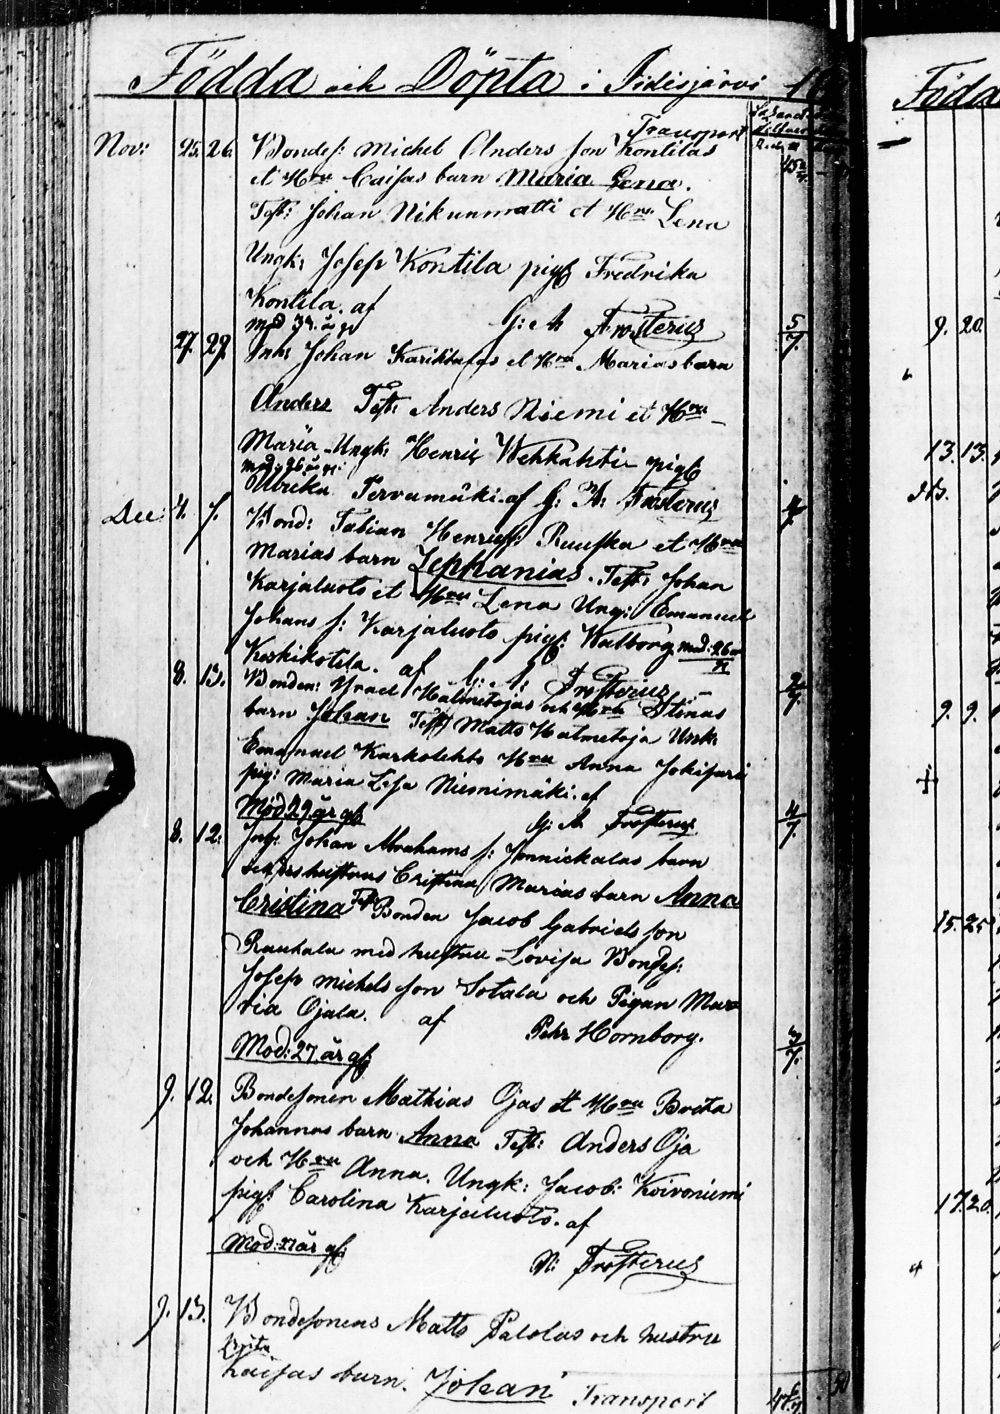 Födda och Döpta i Pidisjärvi
Transport
Nov: 25. 26. Bondes: Michel Anders son Kontilas
et Hru Caisas barn Maria Lena.
Test: Johan Nikunmatti et Hru Lena
Ungk: Josep Kontila pig: Fredrika
Kontila. af G: A Frosterus
27. 29. Inh: Johan et Hru Marias barn
Anders Test: Anders Niemi et Hru
Maria Ungk: Henric Wehkahti pig:
Ulrika Pervamäki. af G: A: Frosterus
Dec: 4. 7. Bond: Fabian Henrics: Ruuska et Hru
Marias barn Zephanias. Test: Johan
Karjaluoto et Hru Lena Ung: Emanuel
Johans s: Karjaluoto pig: Walborg Mod: 26
Keskikotila. af G: A: Frosterus
8. 13. Bonden: Israel Halmetojas och Hru Stinas
barn Johan Test Matts Halmetoja Unk:
Emanuel Karkolehto Hru Anna Jokisari
pig: Maria Lisa Niemimäki. af
Mod 29 år gl G: A Frosterus
8. 12. Johan Abrahams s: barn
Cristina Marias barn Anna
Cristina Test Bonden Jacob Gabriels son
Rauhala med hustru Lovisa Bondes:
Josep Michels son Sotala och Pigan Ma-
ria Ojala. af Pehr Hornborg.
Mod: 27 år gl:
9. 12. Bondesonen Mathias Ojas et Hru Brita
Johannas barn Anna Test: Anders Oja
och Hru Anna. Ungk: Jacob: Koivoniemi
pig: Carolina Karjaluoto. af
Mod: 21 år gl: N: Frosterus
9. 13. Bondesonens Matts Palolas och hustru
Brita
Caisas barn. Johan Transport
Föda
9. 20.
13. 13.
9. 9.
15. 25
17. 20.